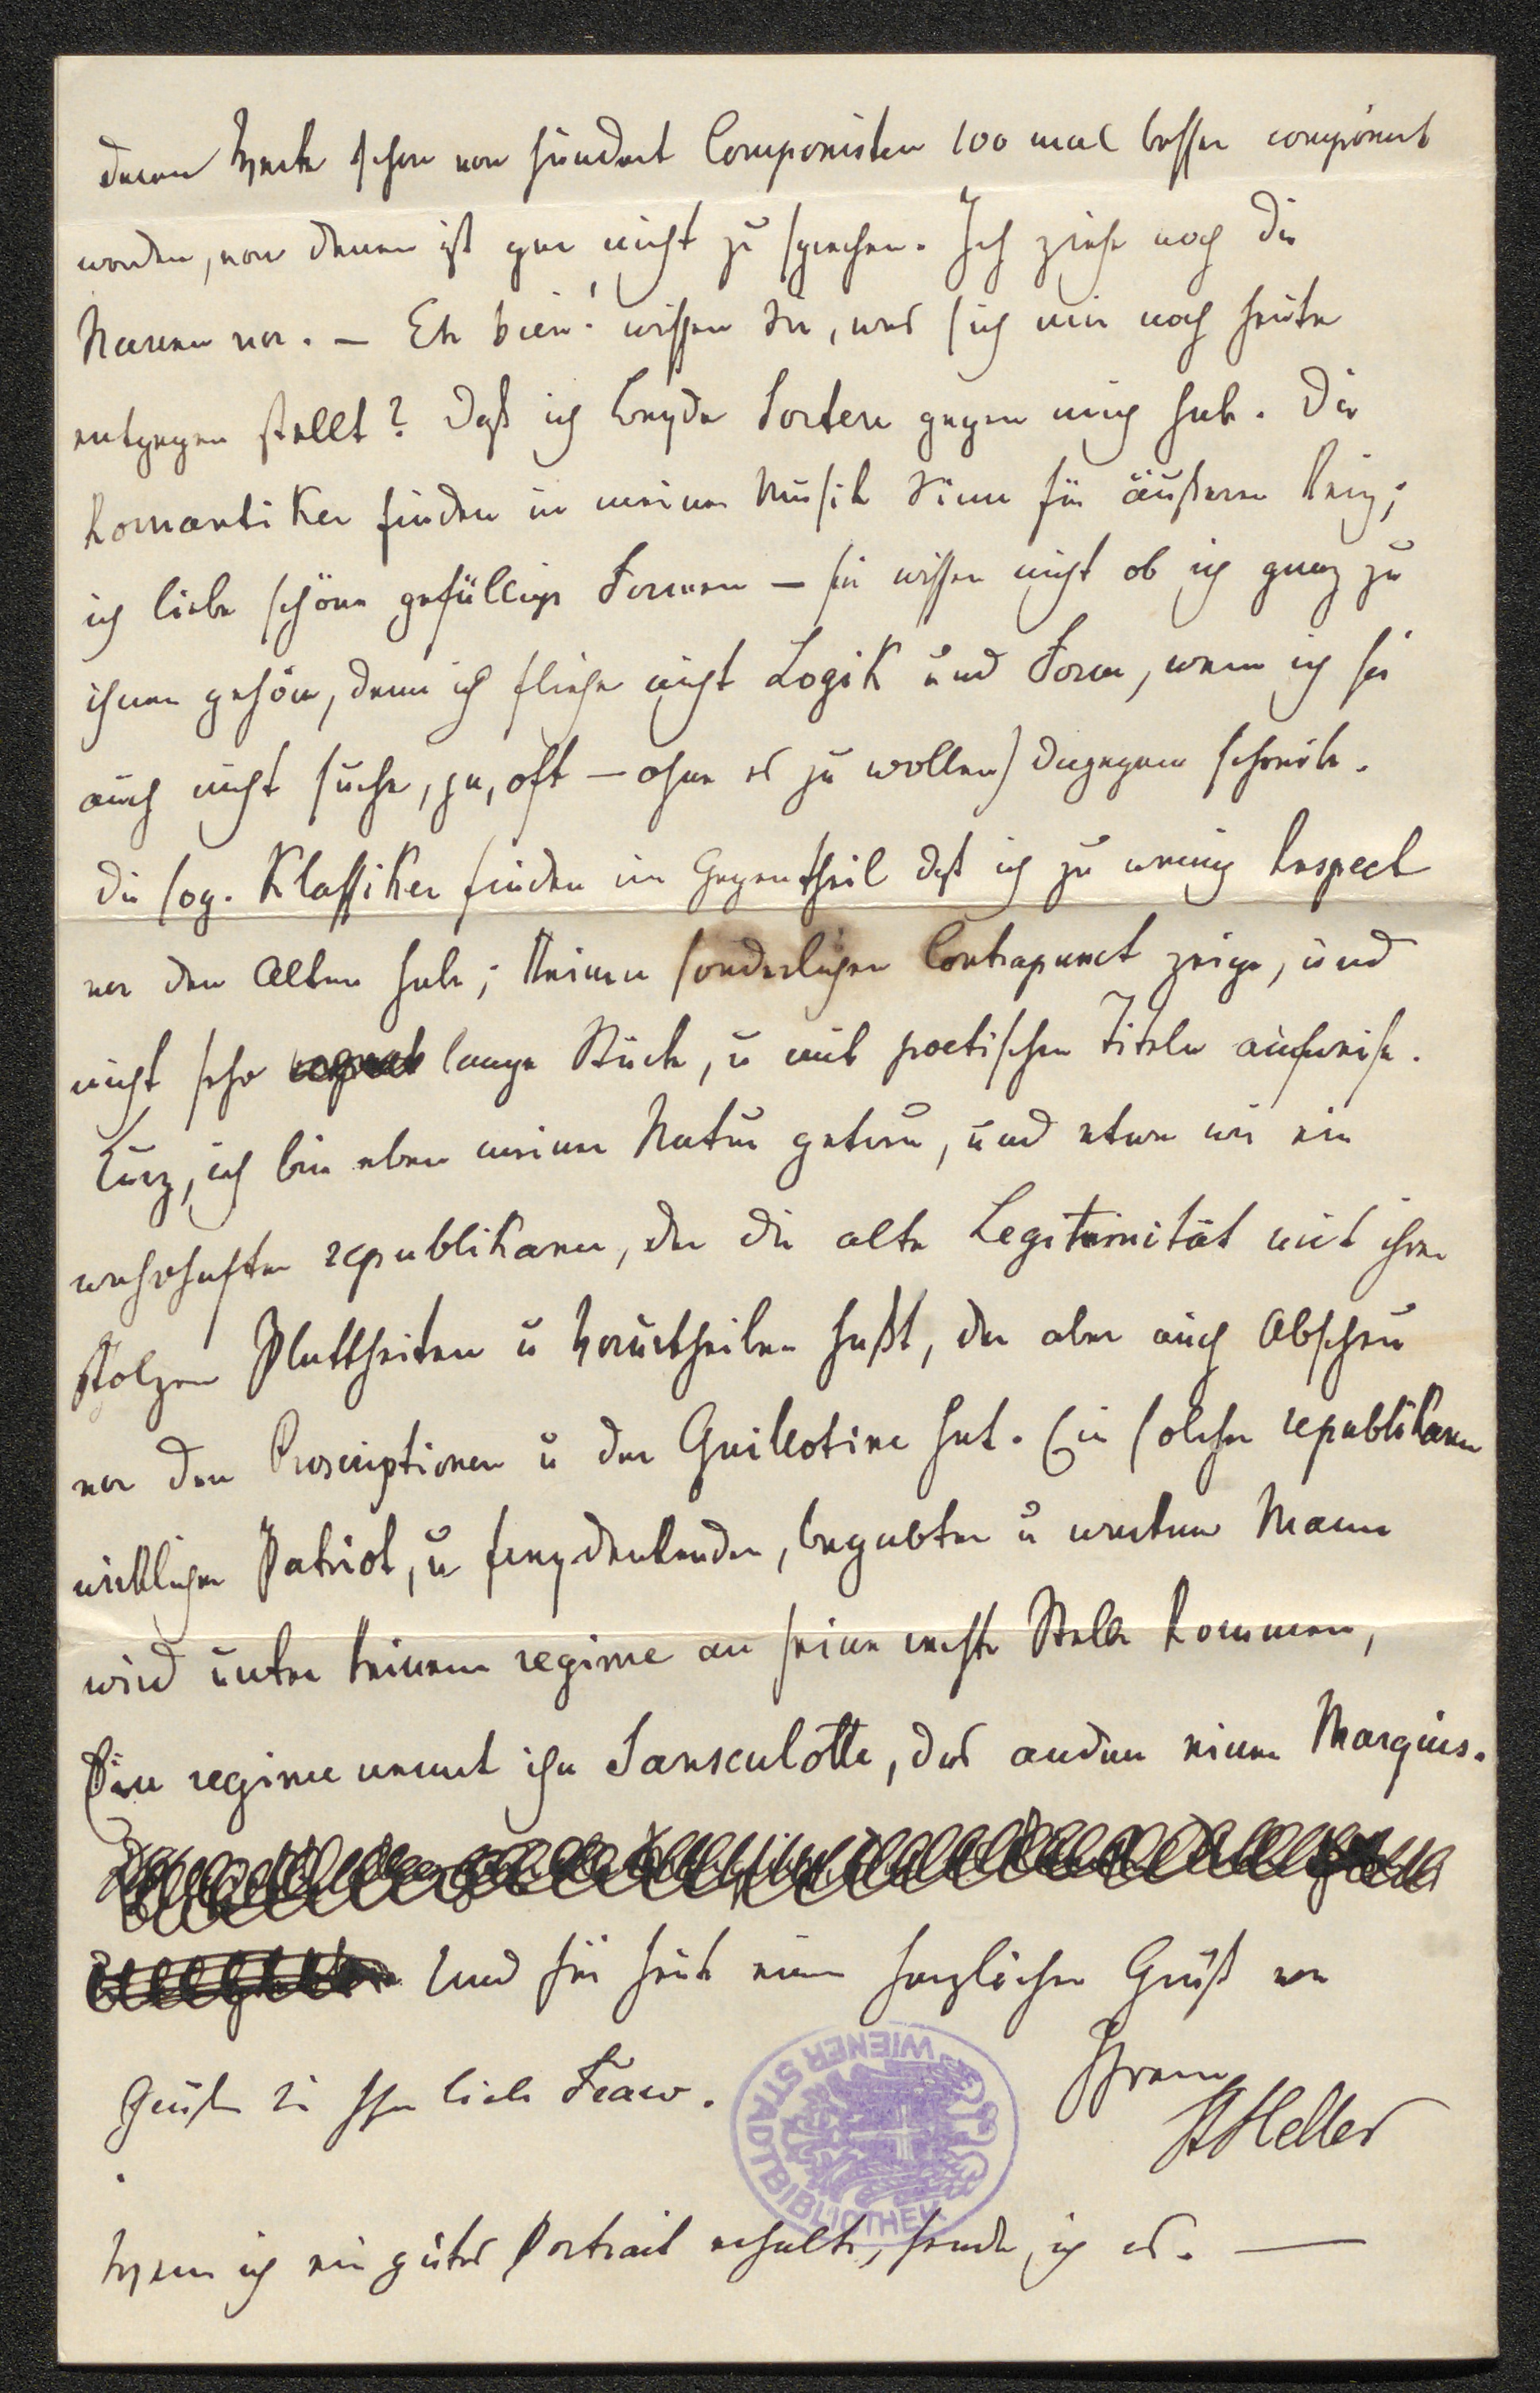 deren Werke schon von hundert Componisten 100 mal besser componirt
worden, von denen ist gar nicht zu sprechen. Ich ziehe noch die
Narren vor. — Eh bien! wissen Sie, was sich mir noch heute
entgegen stellt? Daß ich beyde Sorten gegen mich habe. Die
Romantiker finden in meiner Musik Sinn für äußeren Reiz;
ich liebe schöne gefällige Formen — sie wissen nicht ob ich ganz zu
ihnen gehöre, denn ich fliehe nicht Logik und Form, wenn ich sie
auch nicht suche, ja, oft — ohne es zu wollen) dagegen
Die sog. Klassiker finden im Gegentheil daß ich zu wenig Respect
vor den Alten habe; keinen sonderlichen Contrapunct zeige, und
nicht sehr lange Stücke, u mit poetischen Titeln aufweise.
Kurz, ich bin eben meiner Natur getreu, und etwa wie ein
wahrhafter republikaner, der die alte Legitimität mit ihren
stolzen Plattheiten u Vorurtheilen haßt, der aber auch Abscheu
vor den Proscriptionen u der Guillotine hat. Ein solcher republikaner
wirklicher Patriot, u freydenkender, begabter u Mann
wird unter keinem regime an seine rechte Stelle kommen,
Ein regime nennt ihn Sansculotte, das andere einen Marquis.
Und für heute einen herzlichen Gruß von
Ihrem
Grüßen Sie Ihre liebe Frau.
StHeller
WIENER STADTBIBLIOTHEK
Wenn ich ein gutes Portrait erhalte, sende ich es. —